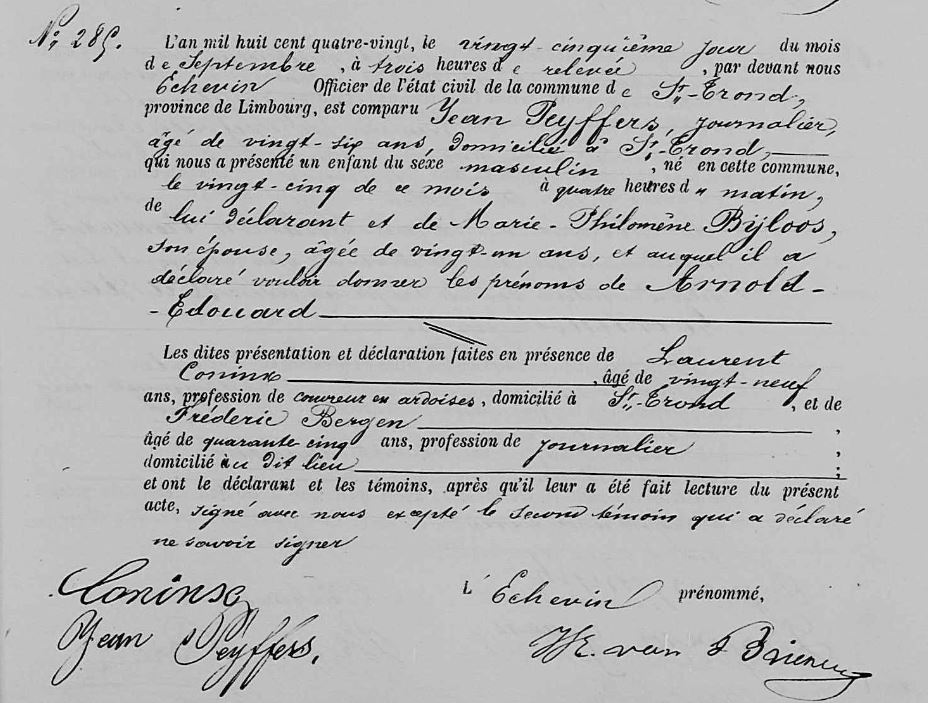 N.º 285.
L'an mil huit cent quatre-vingt, le vingt-cinquième jour du mois
de Septembre, à trois heures de relevée, par devant nous
Echevin Officier de l'état civil de la commune de St.-Trond,
province de Limbourg, est comparu Jean Peyffers, journalier,
âgé de vingt-six ans, domicilié à St.-Trond,
qui nous a présenté un enfant du sexe masculin, né en cette commune,
le vingt-cinq de ce mois à quatre heures d u matin,
de lui déclarant et de Marie-Philomène Bijloos,
son épouse, âgée de vingt-un ans, et auquel il a
déclaré vouloir donner les prénoms de Arnold-
-Edouard
Les dites présentation et déclaration faites en présence de Laurent
Coninx, âgé de vingt-neuf
ans, profession de couvreur en ardoises, domicilié à St.-Trond, et de
Fréderic Bergen,
âgé de quarante-cinq ans, profession de journalier,
domicilié au dit lieu;
et ont le déclarant et les témoins, après qu'il leur a été fait lecture du présent
acte, signé avec nous excepté le second témoin qui a déclaré
ne savoir signer
Coninx
L'Echevin prénommé,
Jean Peyffers.
van d Brienen